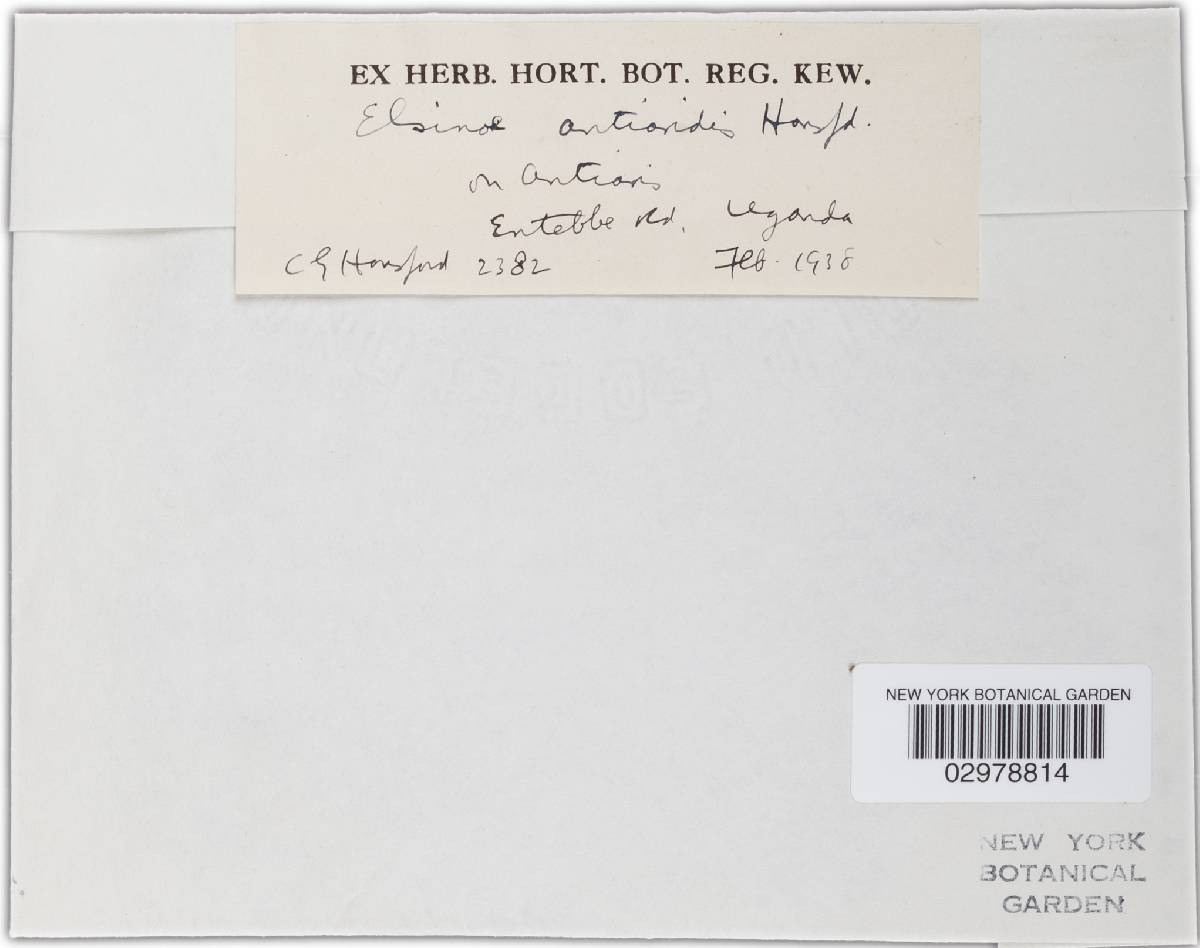 EX HERB. HORT. BOT. REG. KEW.
Elsinoe antiaridis Hansfd.
on Antiaris
Entebbe Rd. Uganda
C G Hansford 2382 Feb. 1938
NEW YORK BOTANICAL GARDEN
02978814
NEW YORK
BOTANICAL
GARDEN